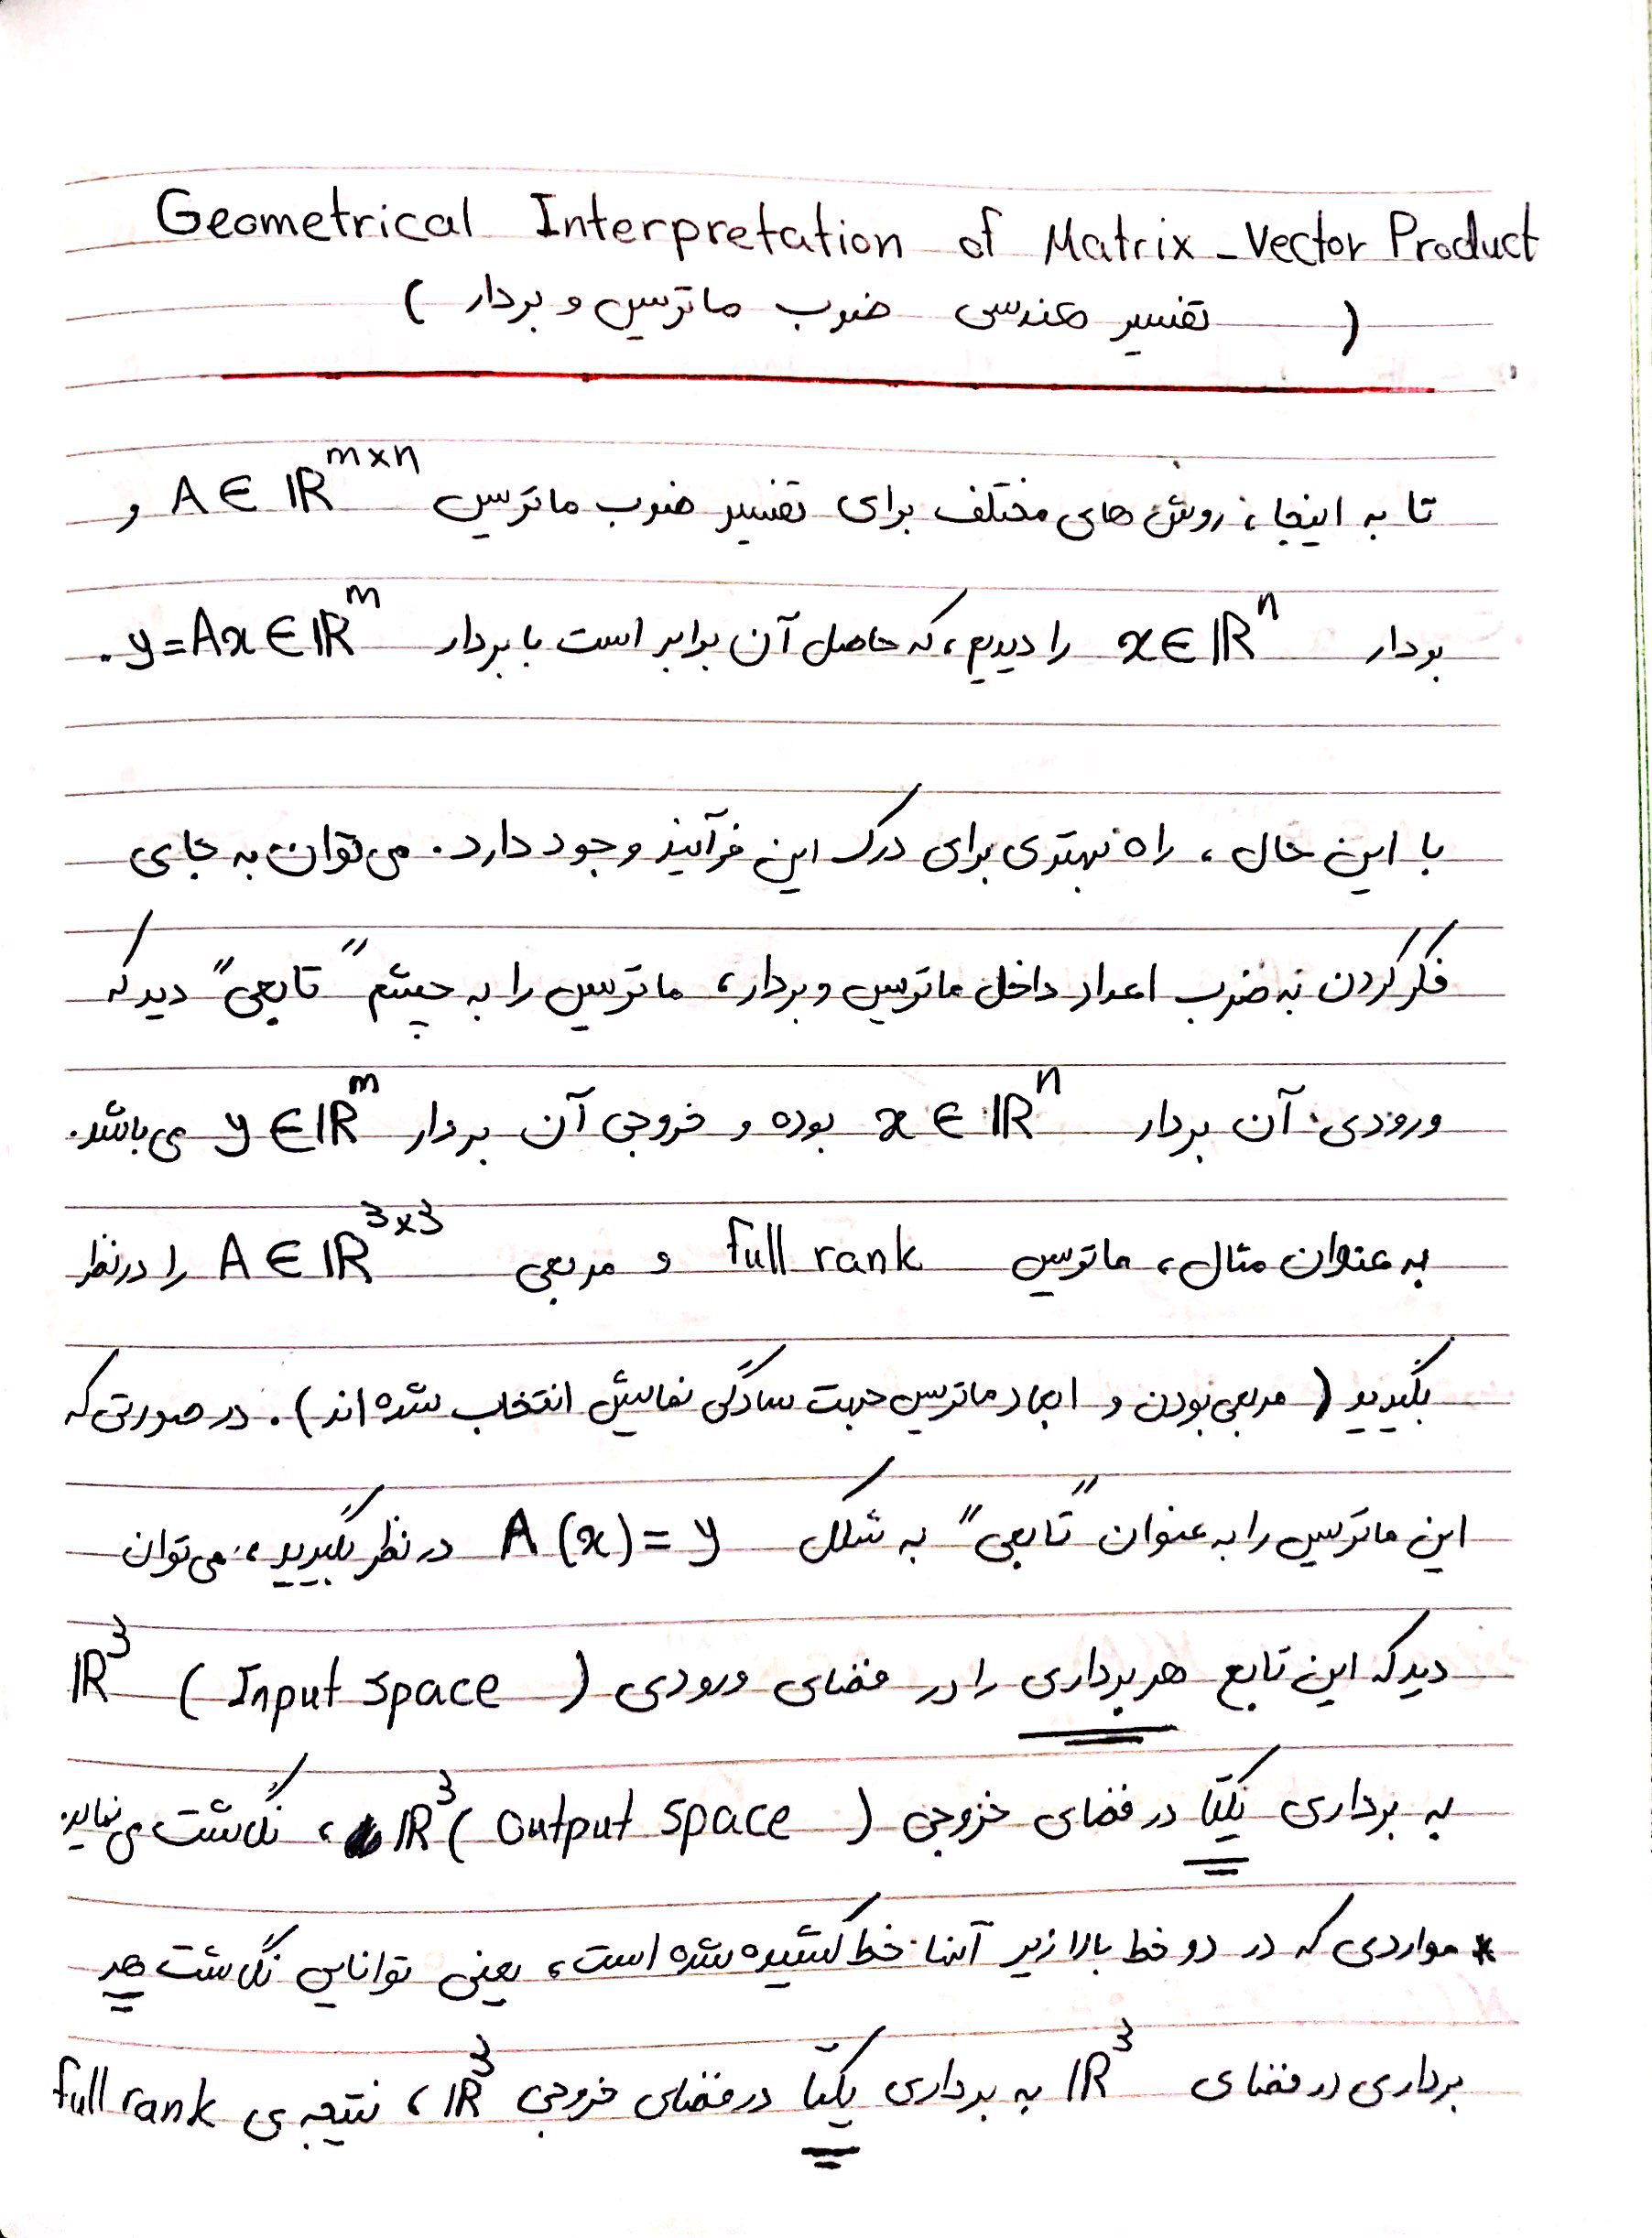 Geometrical Interpretation of Matrix-Vector Product
( تفسیر هندسی ضرب ماتریس و بردار )
تا به اینجا، روش های مختلف برای تفسیر ضرب ماتریس A ∈ ℝ^{m×n} و
بردار x ∈ ℝ^n را دیدیم، که حاصل آن برابر است با بردار y = Ax ∈ ℝ^m .
با این حال، راه بهتری برای درک این فرآیند وجود دارد. می توان به جای
فکر کردن به ضرب اعداد داخل ماتریس و بردار، ماتریس را به چشم "تابعی" دید که
ورودی آن بردار x ∈ ℝ^n بوده و خروجی آن بردار y ∈ ℝ^m می باشد.
به عنوان مثال، ماتریس full rank و مربعی A ∈ ℝ^{3×3} را در نظر
بگیرید ( مربعی بودن و ابعاد ماتریس جهت سادگی نمایش انتخاب شده اند). در صورتی که
این ماتریس را به عنوان "تابعی" به شکل A(x) = y در نظر بگیرید، می توان
دید که این تابع هر برداری را در فضای ورودی ( Input space ) ℝ^3
به برداری یکتا در فضای خروجی ( output space ) ℝ^3 ، نگاشت می نماید.
* مواردی که در دو خط بالا زیر آنها خط کشیده شده است، یعنی توانایی نگاشت هر
برداری در فضای ℝ^3 به برداری یکتا در فضای خروجی ℝ^3 ، نتیجه ی full rank